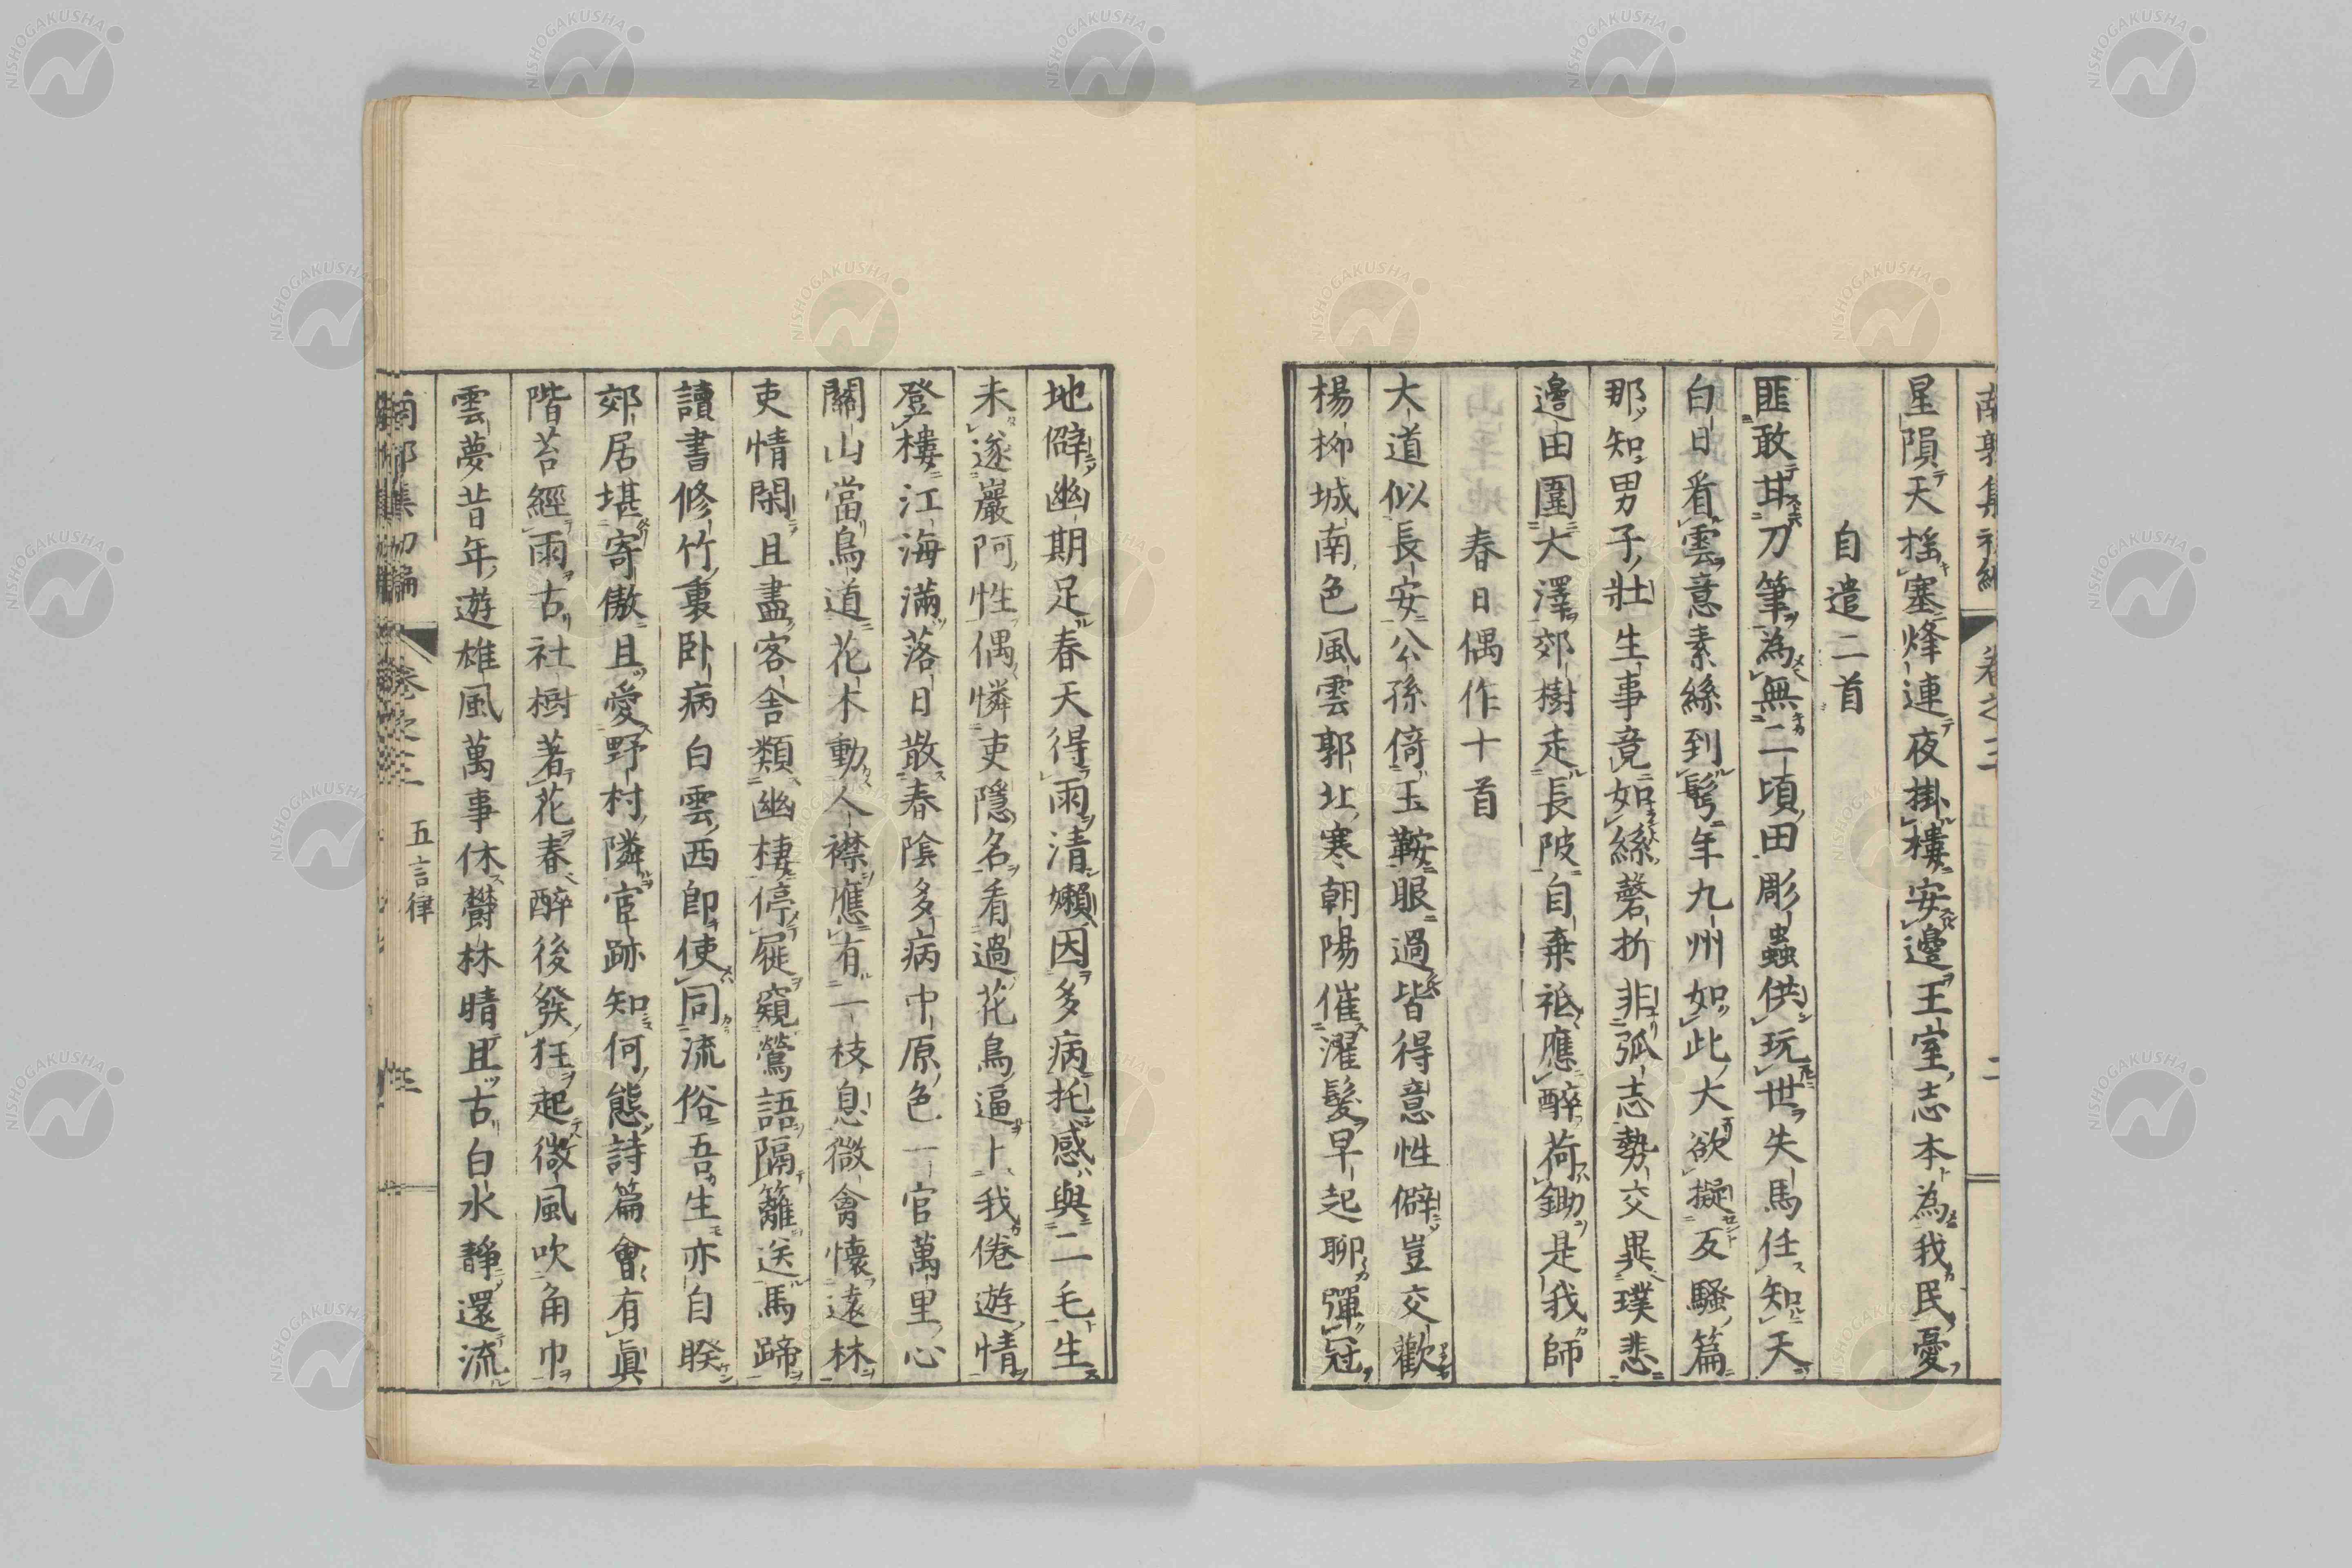 南郭集初編 卷之三
星隕天搖塞烽連夜掛樓安邊王室志本為我民憂
自遣二首
匪敢甘刀筆為無二頃田彫蟲供玩世失馬任知天
白日看雲意素絲到鬢年九州如此大欲擬反騷篇
那知男子壯生事竟如絲磬折非孤志勢交異璞悲
邊田圍大澤郊樹走長陂自棄秪應醉荷鋤是我師
春日偶作十首
大道似長安公孫倚玉鞍眼過皆得意性僻豈交歡
楊柳城南色風雲郭北寒朝陽催濯髮早起聊彈冠
地僻幽期足春天得雨清嬾因多病托感與二毛生
未遂巖阿性偶憐吏隱名看過花鳥逼卜我倦遊情
登樓江海滿落日散春陰多病中原色一官萬里心
關山當鳥道花木動人襟應有一枝息微禽懷遠林
吏情閑且盡客舍類幽棲停屐窺鶯語隔籬送馬蹄
讀書修竹裏臥病白雲西即使同流俗吾生亦自睽
郊居堪寄傲且愛野村隣宦跡知何態詩篇會有眞
階苔經雨古社樹著花春醉後發狂起微風吹角巾
雲夢昔年遊雄風萬事休鬱林晴且古白水靜還流
南郭集初編 卷之三 五言律